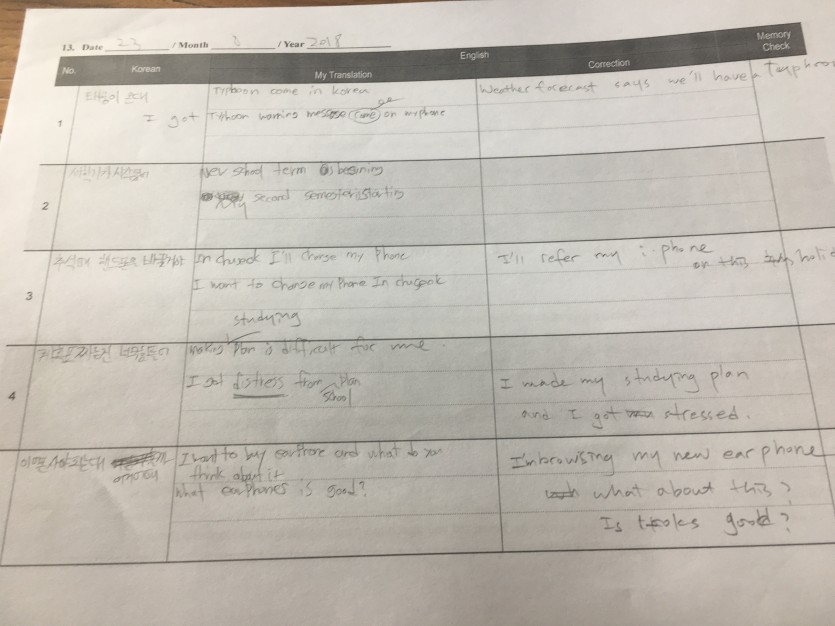 13. Date 23 / Month 8 / Year 2018
No. Korean English Memory Check
My Translation Correction
1 태풍이 온대
Typhoon come in Korea
I got Typhoon warning message came on my phone
Weather forecast says we'll have a Typhoon
2
New school term is begining
second semester is startin
3 추석때 핸드폰을 바꿀거야
In chuseok I'll change my Phone
I want to change my Phone In chuseok
I'll refer my i-phone on this holi
4
studying
making plan is difficult for me.
I got distress from plan
school
I made my studying plan
and I got stressed.
I want to buy earphone and what do you
think about it
what earphones is good?
I'm browsing my new ear phone
what about this?
Is good?